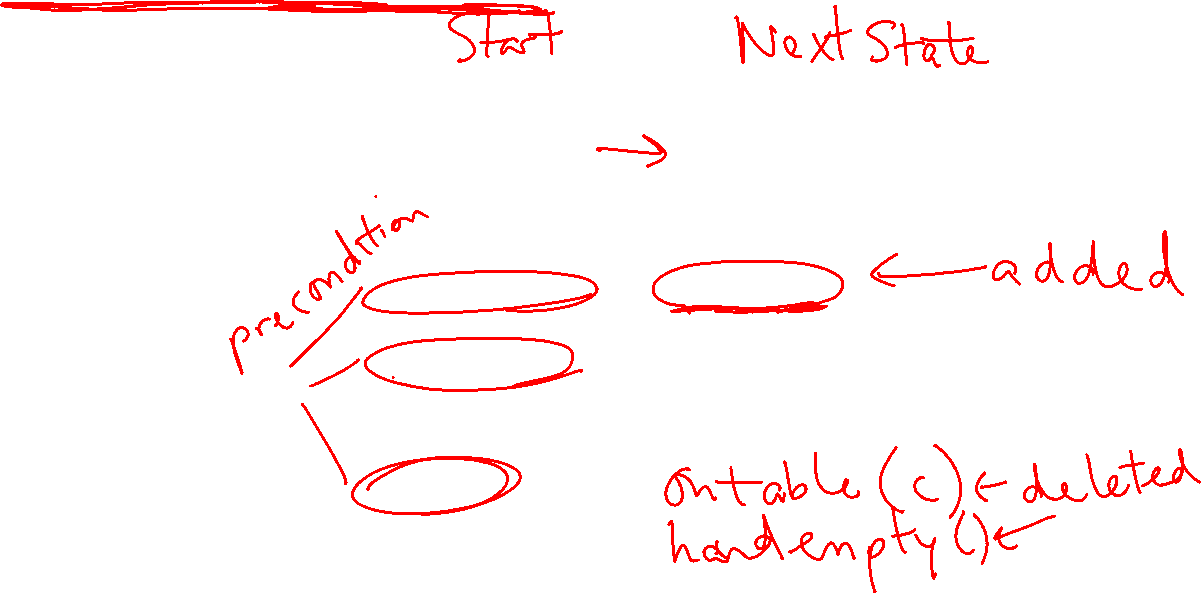 Start Next State
precondition
added
ontable (c) ← deleted
handempty () ←